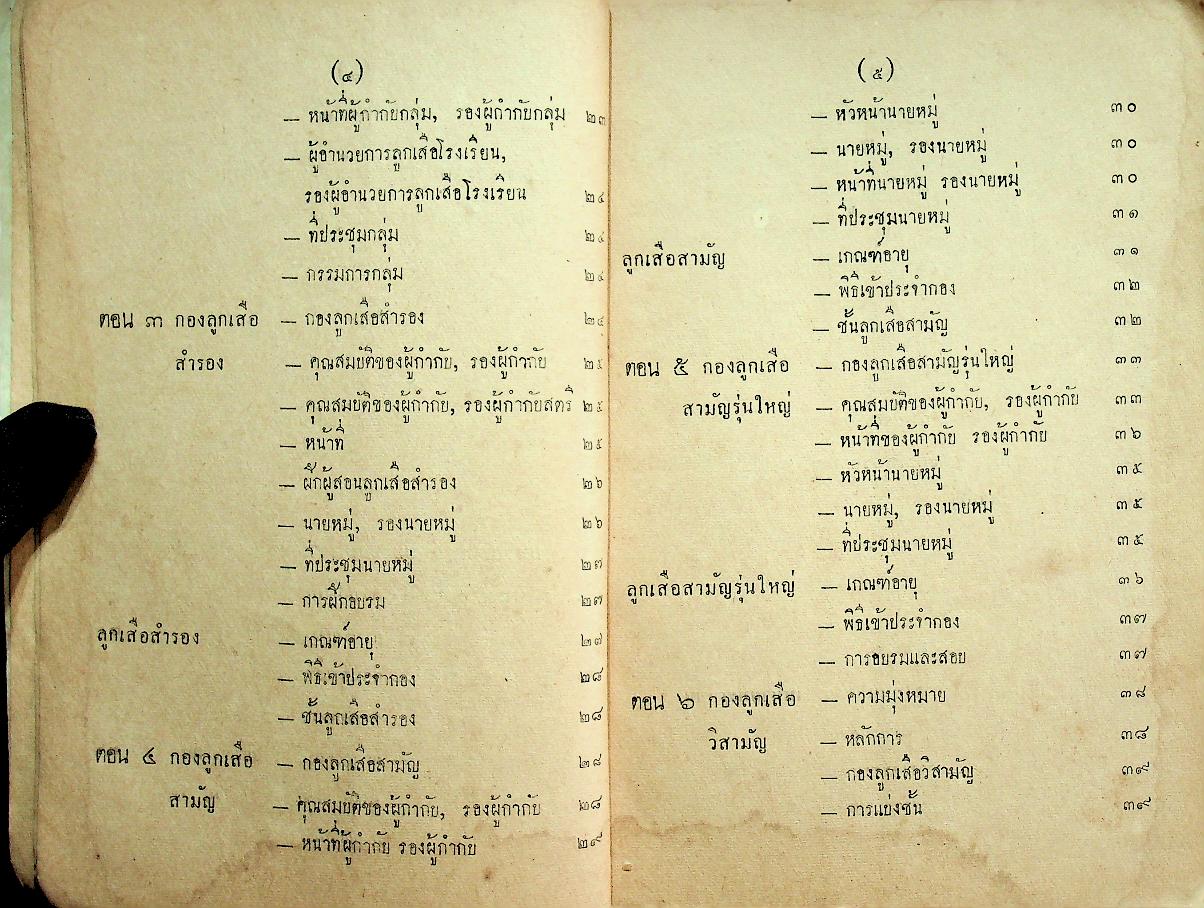 (๔)
— หน้าที่ผู้กำกับกลุ่ม, รองผู้กำกับกลุ่ม ๒๓
— ผู้อำนวยการลูกเสือโรงเรียน,
รองผู้อำนวยการลูกเสือโรงเรียน ๒๔
— ที่ประชุมกลุ่ม ๒๔
— กรรมการกลุ่ม ๒๔
ตอน ๓ กองลูกเสือ — กองลูกเสือสำรอง ๒๔
สำรอง — คุณสมบัติของผู้กำกับ, รองผู้กำกับ ๒๕
— คุณสมบัติของผู้กำกับ, รองผู้กำกับสตรี ๒๕
— หน้าที่ ๒๕
— ผึกผู้สอนลูกเสือสำรอง ๒๖
— นายหมู่, รองนายหมู่ ๒๖
— ที่ประชุมนายหมู่ ๒๗
— การผึกอบรม ๒๗
ลูกเสือสำรอง — เกณฑ์อายุ ๒๗
— พิธีเข้าประจำกอง ๒๘
— ชั้นลูกเสือสำรอง ๒๘
ตอน ๔ กองลูกเสือ — กองลูกเสือสามัญ ๒๘
สามัญ — คุณสมบัติของผู้กำกับ, รองผู้กำกับ ๒๘
— หน้าที่ผู้กำกับ รองผู้กำกับ ๒๙
(๕)
— หัวหน้านายหมู่ ๓๐
— นายหมู่, รองนายหมู่ ๓๐
— หน้าที่นายหมู่ รองนายหมู่ ๓๐
— ที่ประชุมนายหมู่ ๓๑
ลูกเสือสามัญ — เกณฑ์อายุ ๓๑
— พิธีเข้าประจำกอง ๓๒
— ชั้นลูกเสือสามัญ ๓๒
ตอน ๕ กองลูกเสือ — กองลูกเสือสามัญรุ่นใหญ่ ๓๓
สามัญรุ่นใหญ่ — คุณสมบัติของผู้กำกับ, รองผู้กำกับ ๓๓
— หน้าที่ของผู้กำกับ รองผู้กำกับ ๓๖
— หัวหน้านายหมู่ ๓๕
— นายหมู่, รองนายหมู่ ๓๕
— ที่ประชุมนายหมู่ ๓๕
ลูกเสือสามัญรุ่นใหญ่ — เกณฑ์อายุ ๓๖
— พิธีเข้าประจำกอง ๓๗
— การอบรมและสอบ ๓๗
ตอน ๖ กองลูกเสือ — ความมุ่งหมาย ๓๘
วิสามัญ — หลักการ ๓๘
— กองลูกเสือวิสามัญ ๓๙
— การแบ่งชั้น ๓๙